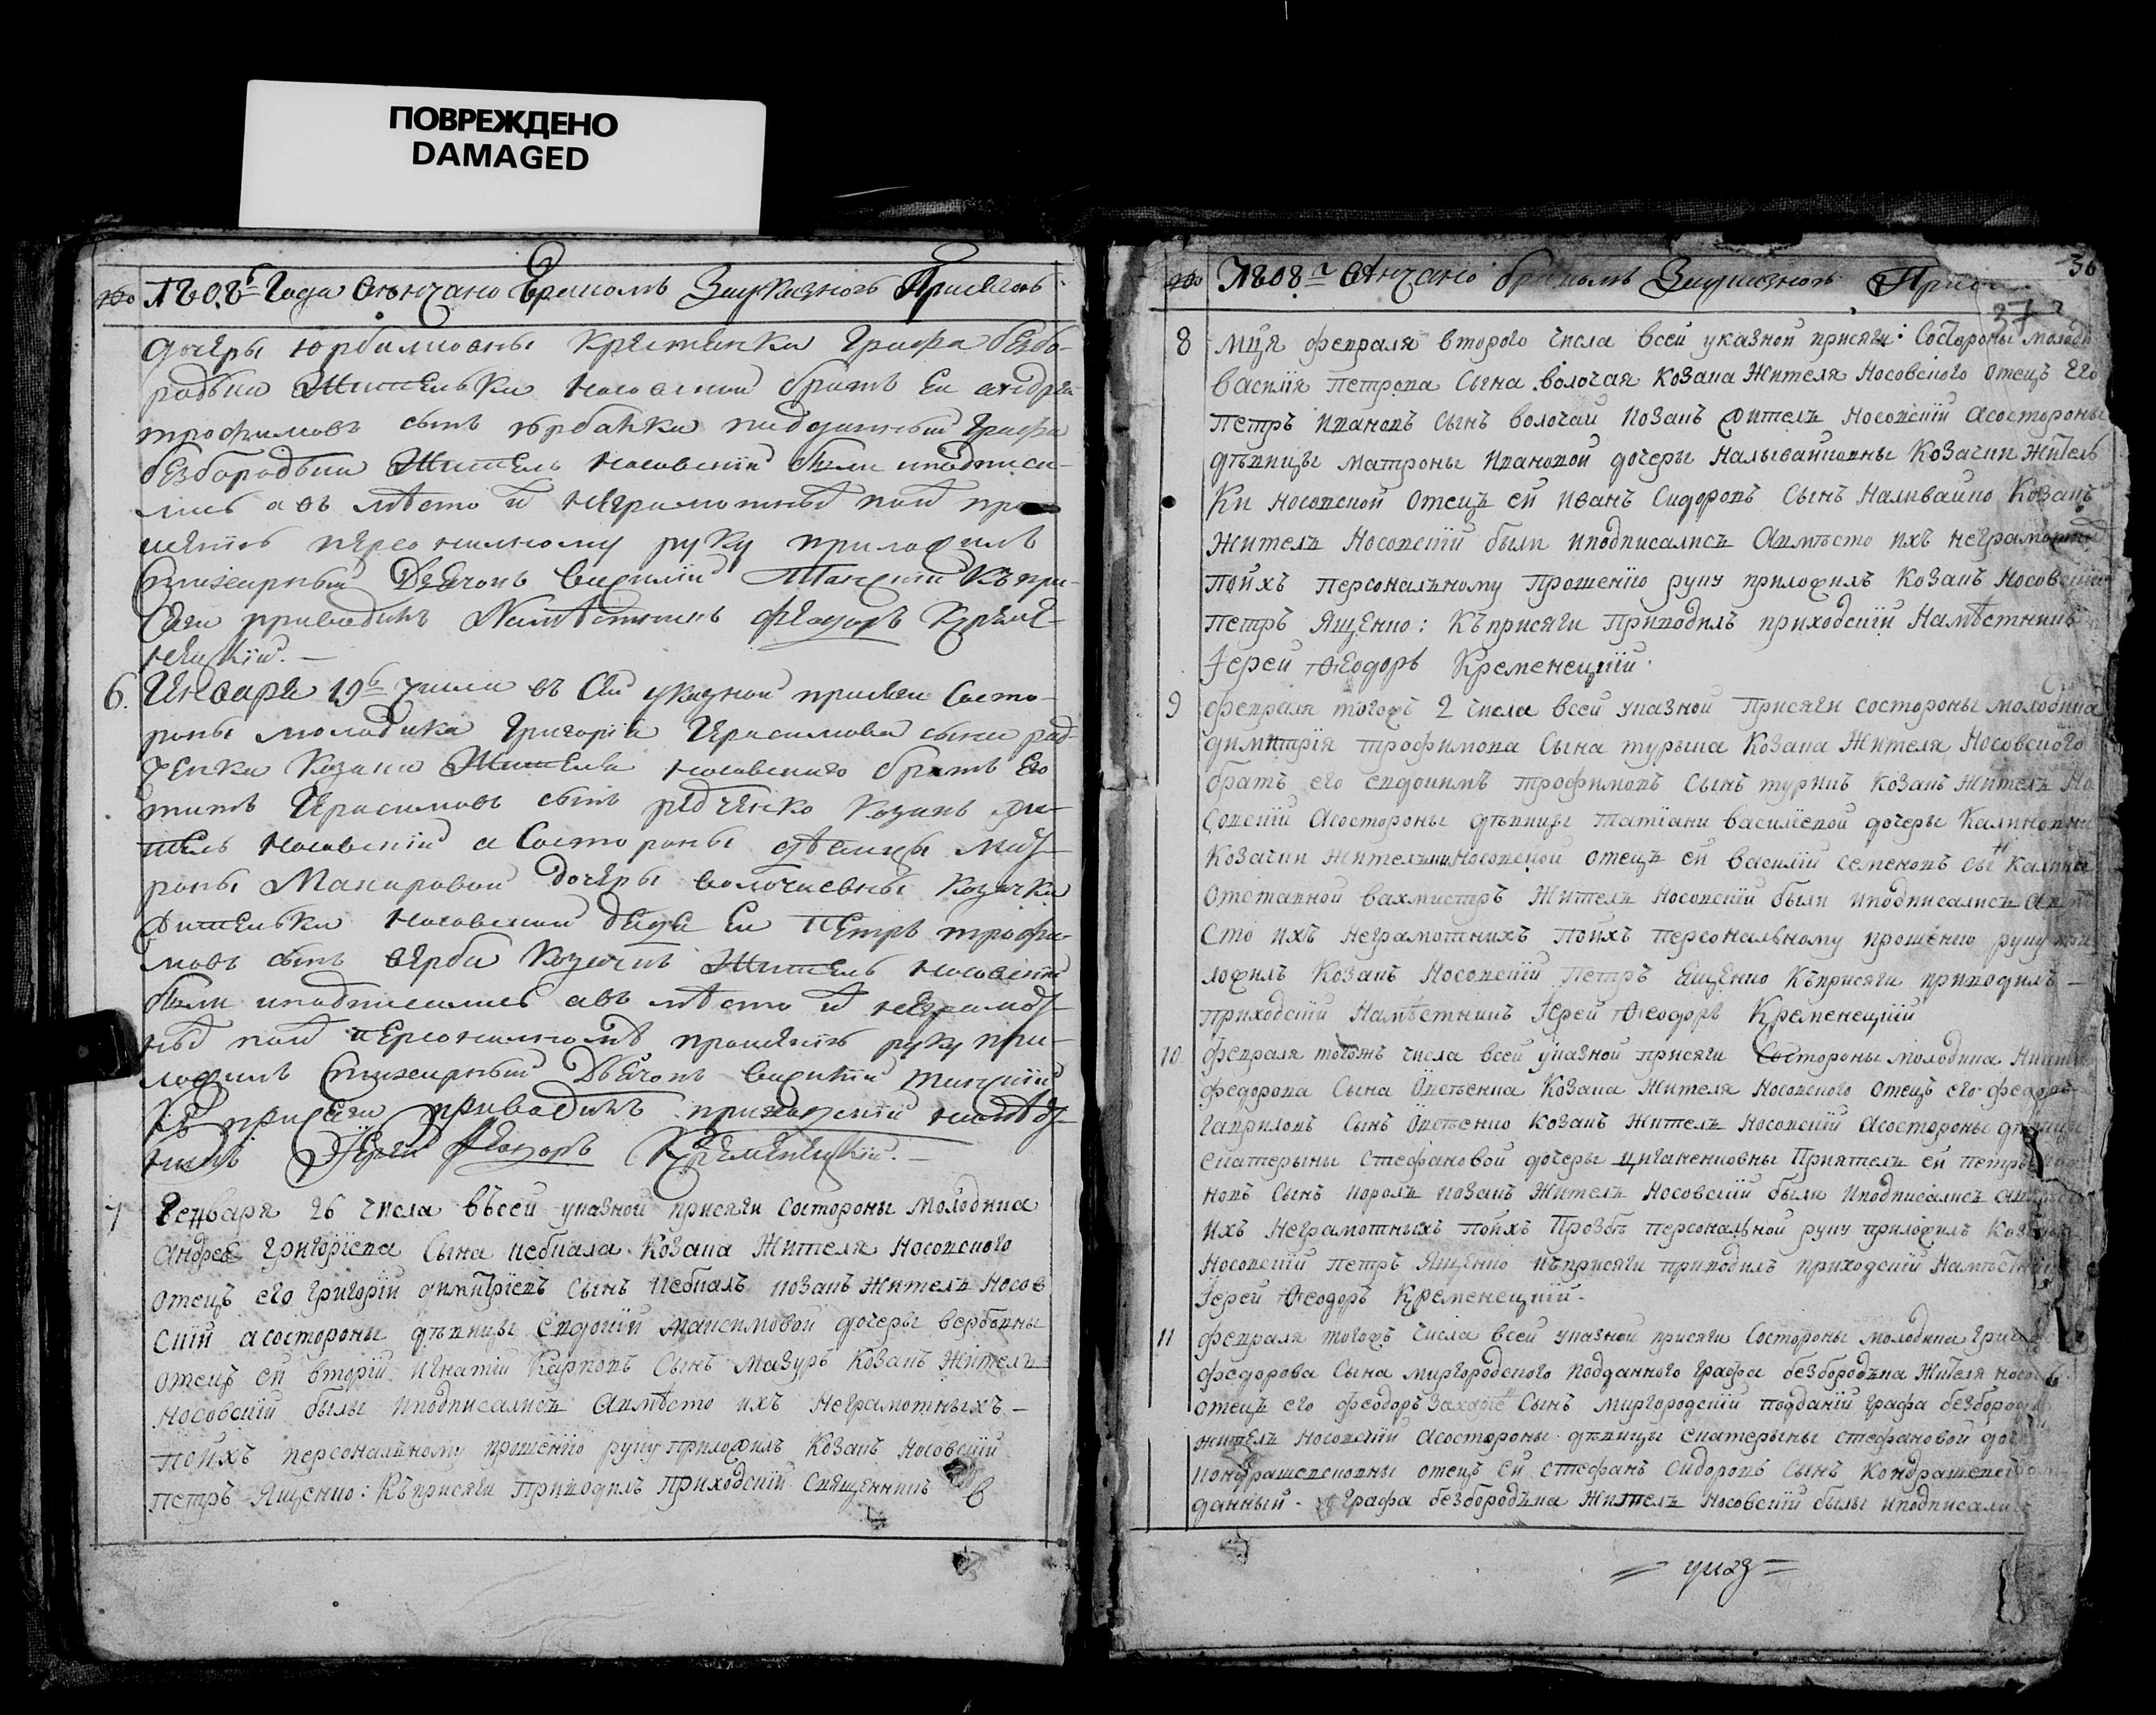 ПОВРЕЖДЕНО
DAMAGED
№ 1808г Года Вѣнчано Бракомъ Зауказною Присягою
дочеры юрбалиовны Крестянки Графа безбо-
родъки Жителки носовской братъ ей андрей
трофимовъ сынъ юрбалка подданный Графа
безбородъки Житель носовскій были иподписа-
лись авъ мѣсто ихъ неграмотныхъ поихъ про
шенію персоналному руку приложилъ
стихарный Дьячокъ василій Танскій Къ при-
сяги приводилъ Намѣстникъ феодоръ Креме-
нецкій.—
6. Генваря 19го числа въ сей указной присяги Состо-
роны молодика Григорія Герасимова сына ред-
ченка Козака Жителя носовского братъ его
титъ Герасимовъ сынъ редченко Козакъ жи-
тель носовскій а Состороны дѣвицы мат-
роны Макаровой дочеры волочаевны козачки
жителки носовской дядя ей Петръ трофи-
мовъ сынъ верба Козакъ Житель носовскій
были иподписались авъ мѣсто ихъ неграмот-
ныхъ поихъ персоналному прошенію руку при-
ложилъ стихарный Дьячокъ василій танскій
Къ присяги приводилъ приходскій намѣст-
никъ Іерей Феодоръ Кременецкій.—
7 Генваря 26 числа въсей указной присяги состороны молодика
Андрея григоріева Сына цебкала Козака Жителя Носовского
отецъ его григорій димитріевъ сынъ цебкалъ козакъ Жителъ Носов
скій асостороны дѣвицы евдокіи максимовой дочеры вербовны
отецъ ей вторій Игнатій Карповъ Сынъ мазуръ Козакъ Жителъ
Носовскій былы иподписалисъ авмѣсто ихъ неграмотныхъ —
поихъ персоналъному прошенію руку приложилъ Козакъ Носовскій
петръ Ященко: Къприсяги Приводилъ приходскій священникъ
№ 1808г Вѣнчано бракомъ Зауказною Прися
36
37
8 мця февраля второго числа всей указной присяги: Состороны молоди
василія петрова Сына волочая Козака Жителя Носовского отецъ его
петръ ивановъ сынъ волочай козакъ жителъ Носовскій асостороны
дѣвицы матроны Ивановой дочеры Наливайковны Козачки жител
ки носовской отецъ ей иванъ Сидоровъ Сынъ Наливайко Козакъ
жителъ Носовскій были иподписалисъ авмѣсто ихъ неграмотных
поихъ персоналъному прошенію руку приложилъ Козакъ Носовскій
петръ Ященко: Къприсяги Приводилъ приходскій Намѣстникъ
Іерей Ѳеодоръ Кременецкій.
9 февраля тогожъ 2 числа всей указной Присяги состороны молодика
димитрія трофимова Сына турыка Козака Жителя Носовского
братъ его евдокимъ трофимовъ Сынъ турикъ Козакъ Жителъ Но
совскій асостороны дѣвицы татіани василіевой дочеры Калиновны
Козачки жителъки Носовской отецъ ей василій семеновъ сынъ Калина
отставной вахмистръ Жителъ Носовскій были иподписалисъ авмѣ
сто ихъ неграмотнихъ поихъ персональному прошенію руку при
ложилъ Козакъ Носовскій петръ Ященко Къприсяги приводилъ —
приходскій Намѣстникъ Іерей Ѳеодоръ Кременецкій
10 февраля тогожъ числа всей указной присяги Состороны молодика Ники
федорова Сына Козака Жителя Носовского отецъ его федоръ
гавриловъ Сынъ Козакъ Жителъ Носовскій асостороны дѣвицы
екатерыны стефановой дочеры циганенковны Приятелъ ей петръ
новъ Сынъ королъ козакъ Жителъ Носовскій были иподписалисъ авмѣсто
ихъ неграмотныхъ поихъ Прозбѣ персоналной руку приложилъ Козакъ
Носовскій петръ Ященко къприсяги приводилъ приходскій Намѣстникъ
Іерей Ѳеодоръ Кременецкій.
11 февраля тогожъ числа всей указной присяги Состороны молодика григ
федорова Сына миргородского подданного графа безбородъка Жителя носов
отецъ его феодоръ Захаріе Сынъ миргородскій подданій графа безбород
жителъ Носовскій асостороны дѣвицы екатерыны стефановой доче
кондрашевсковны отецъ ей стефанъ сидоровъ сынъ Кондрашевскій под
данный графа безбородъка Жителъ Носовскій былы иподписали
= указ =